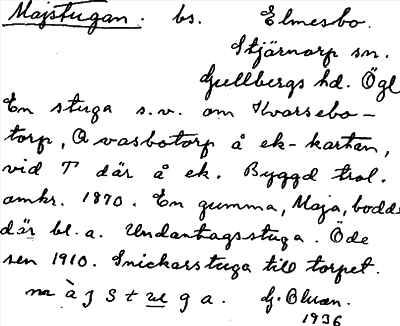 Majstugan. bs. Elmesbo.
Stjärnorp sn.
Gullbergs hd. Ögl
En stuga s.v. om Kvarsebo-
torp, Qvasbotorp å ek-kartan,
vid T där å ek. Byggd trol.
omkr. 1870. En gumma, Maja, bodde
där bl.a. Undantagsstuga. Öde
sen 1910. Snickarstuga till torpet.
1936